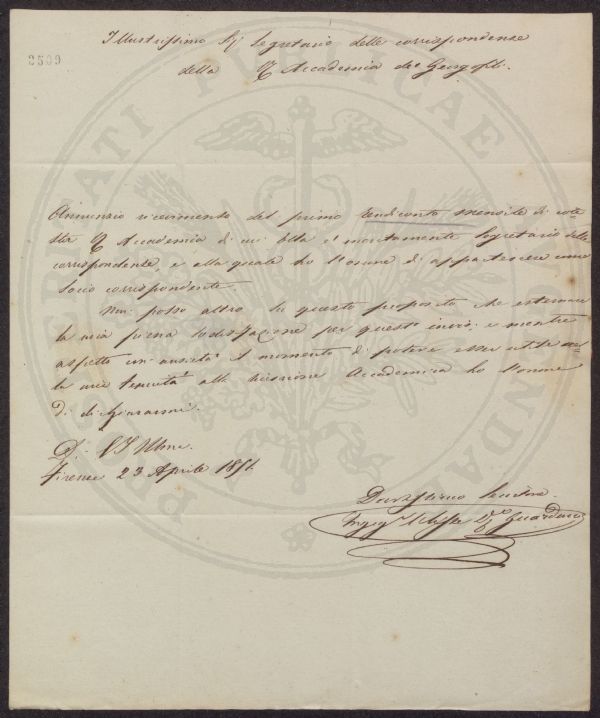 Illustrissimo Sig Segretario delle corrispondenze
2509
della R Accademia de Georgofili.
Annunzio ricevimento del primo Rendiconto Mensile di cote
sta R Accademia di cui Ella è meritamente Segretario delle
corrispondenze, e alla quale ho l'onore di appartenere come
Socio corrispondente.
Non posso altro su questo proposito che esternare
la mia piena sodisfazione per questo invio, e mentre
aspetto con ansietà il momento di potere esser utile nel
la mia tenuità alla Accademica ho l'onore
di di
D. VS Illma.
Firenze 23 Aprile 1851.
Devotissimo Servitore
Ingeg Ulisse Guarducci
PROSPERITATI PUBLICAE AUGENDAE